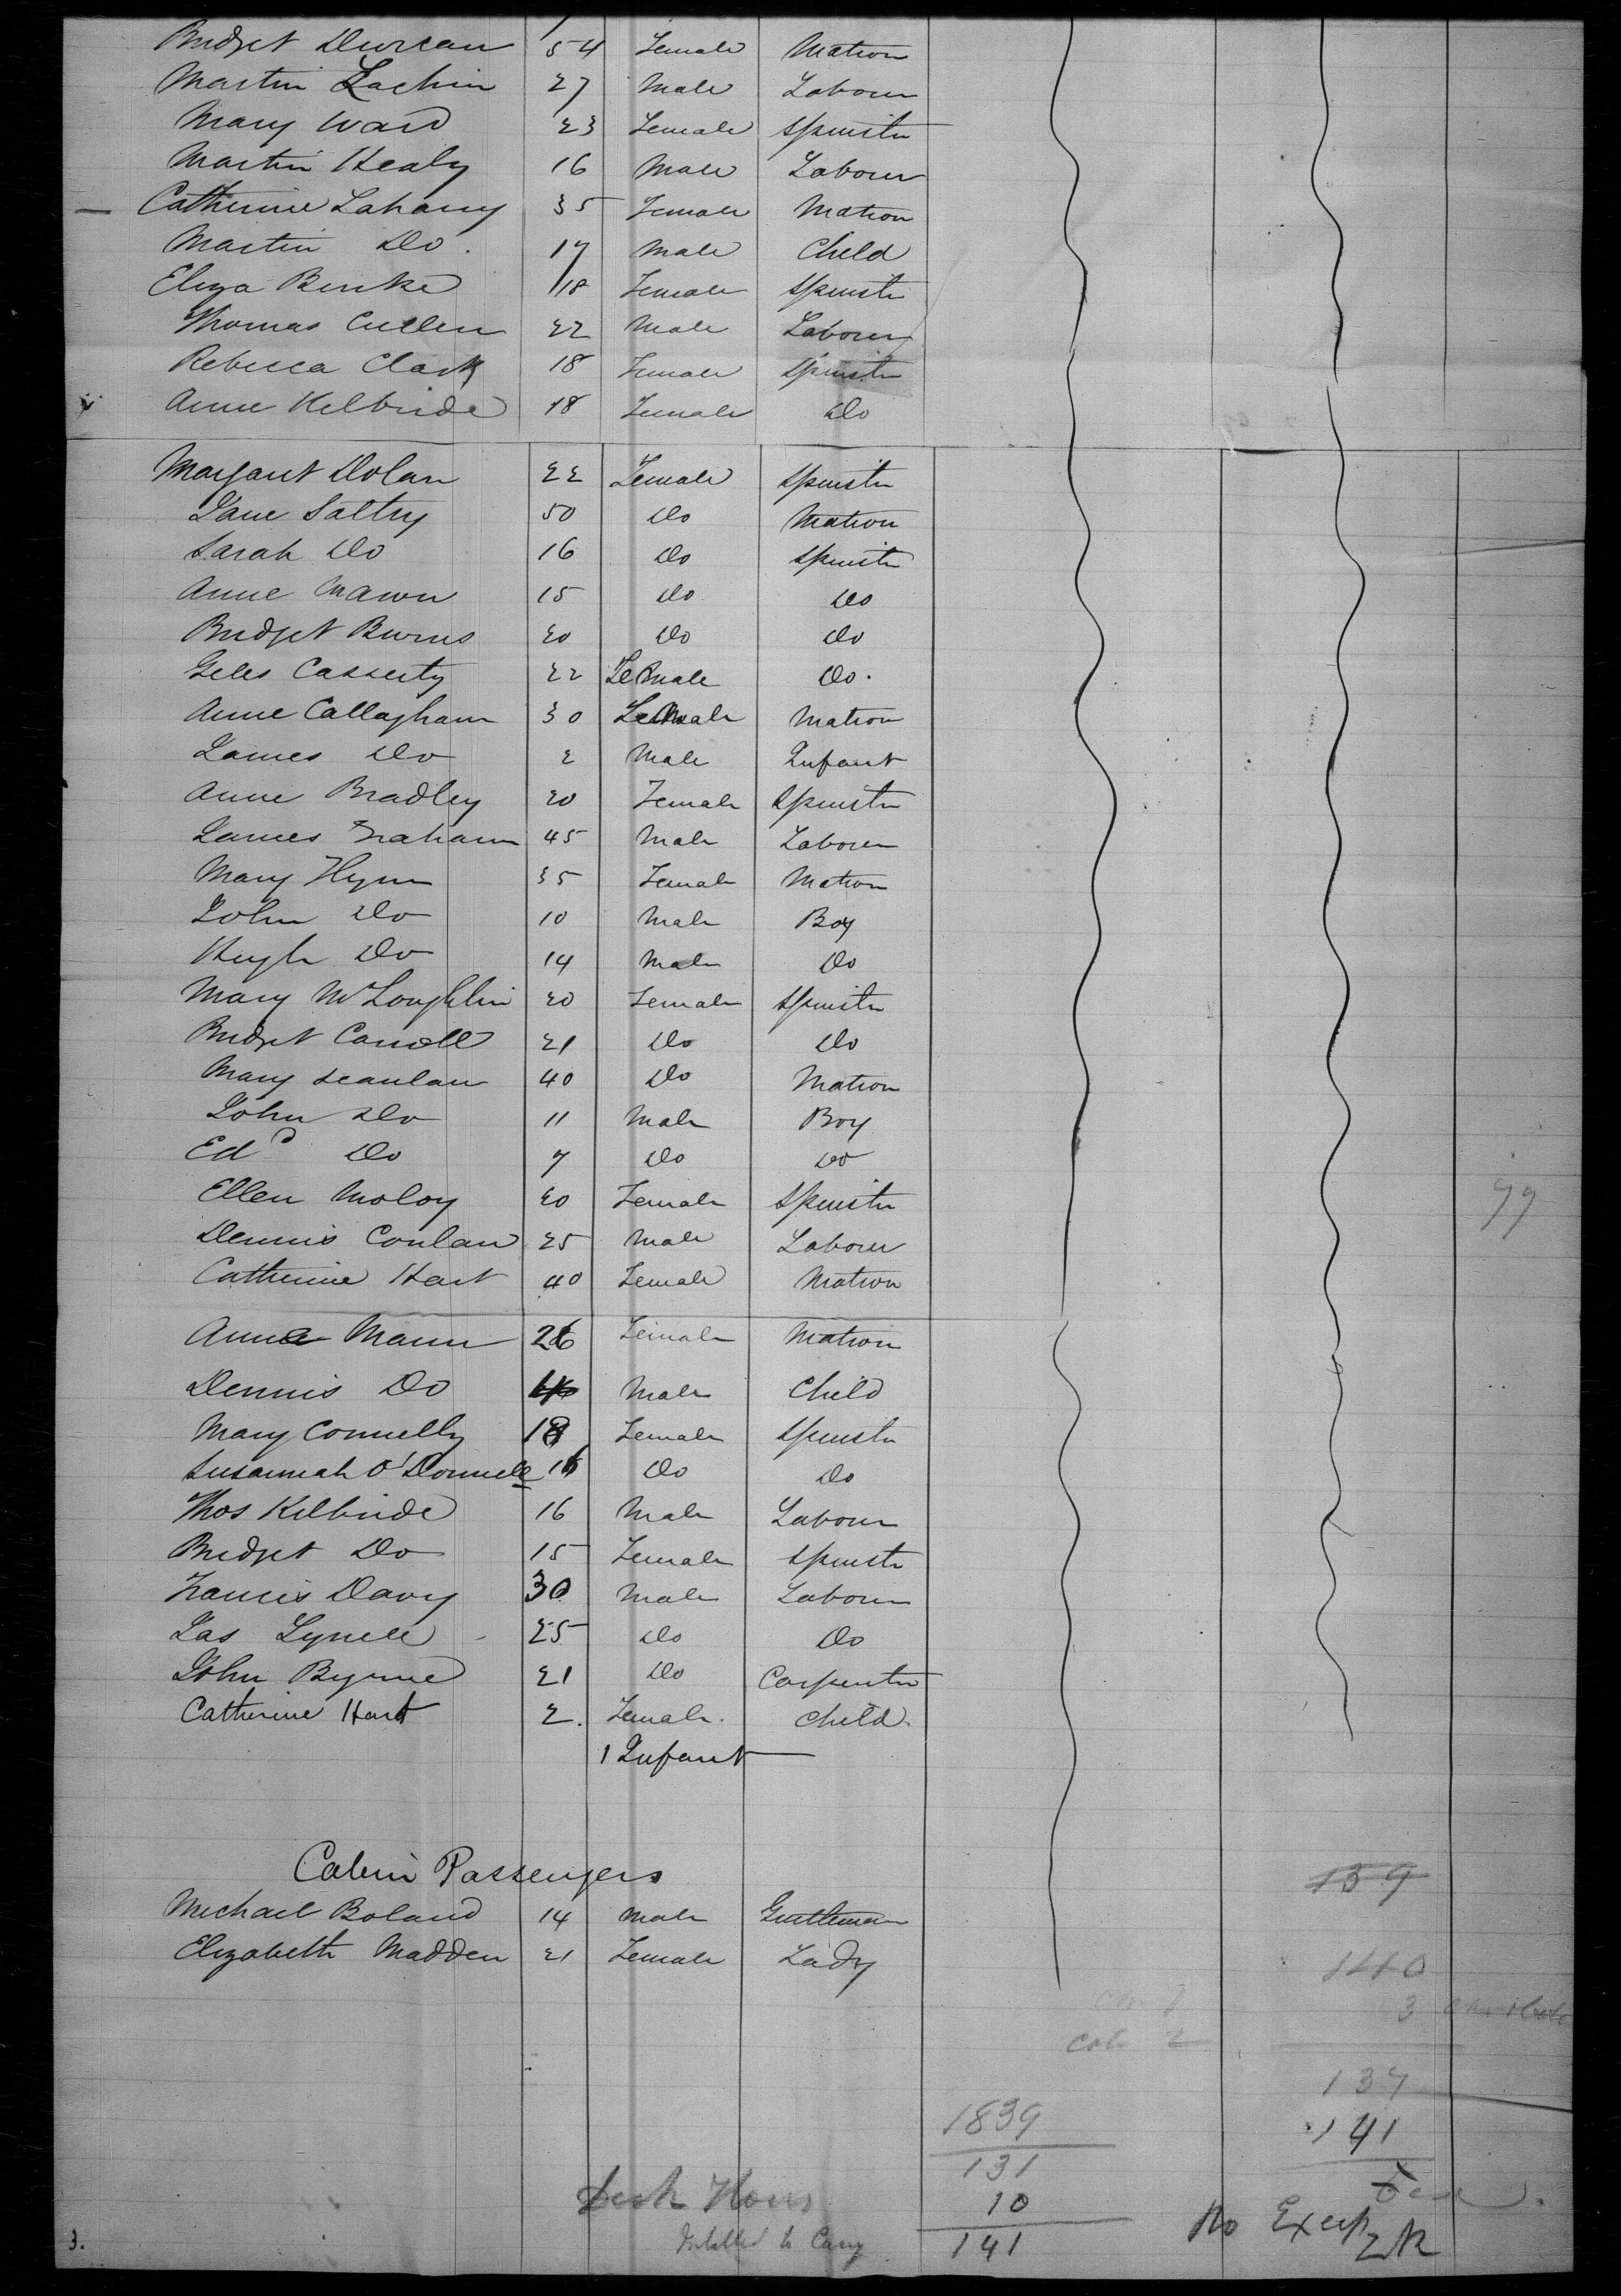 Bridget Durcan 54 Female Matron
Martin Lachin 27 Male Labourer
Mary Ward 23 Female Spinster
Martin Healy 16 Male Labourer
Catherine Lahany 35 Female Matron
Martin Do. 17 Male Child
Eliza Burke 18 Female Spinster
Thomas Cullen 22 Male Labourer
Rebecca Clark 18 Female Spinster
Anne Kilbride 18 Female Do
Margaret Dolan 22 Female Spinster
Jane Saltry 50 Do Matron
Sarah Do 16 Do Spinster
Anne Mawn 15 Do Do
Bridget Burns 20 Do Do
Geles Casserty 22 Female Do.
Anne Callaghan 30 Female Matron
James Do 2 Male Infant
Anne Bradley 20 Female Spinster
James Graham 45 Male Labourer
Mary Flynn 35 Female Matron
John Do 10 Male Boy
Hugh Do 14 Male Do
Mary McLoughlin 20 Female Spinster
Bridget Carroll 21 Do Do
Mary Scanlan 40 Do Matron
John Do 11 Male Boy
Edd Do 7 Do Do
Ellen Moloy 20 Female Spinster
Dennis Conlan 25 Male Labourer
Catherine Hart 40 Female Matron
Anne Mann 26 Female Matron
Dennis Do Male Child
Mary Connelly 18 Female Spinster
Susannah O'Donnell 16 Do Do
Thos Kilbride 16 Male Labourer
Bridget Do 15 Female Spinster
Francis Davy 30 Male Labourer
Jas Lynell 25 Do Do
John Byrne 21 Do Carpenter
Catherine Hart 2. Female. Child.
1 Infant
Cabin Passengers
Michael Boland 14 Male Gentleman
Elizabeth Madden 21 Female Lady
79
139
140
3
137
141
1839
131
10
141
No
3.